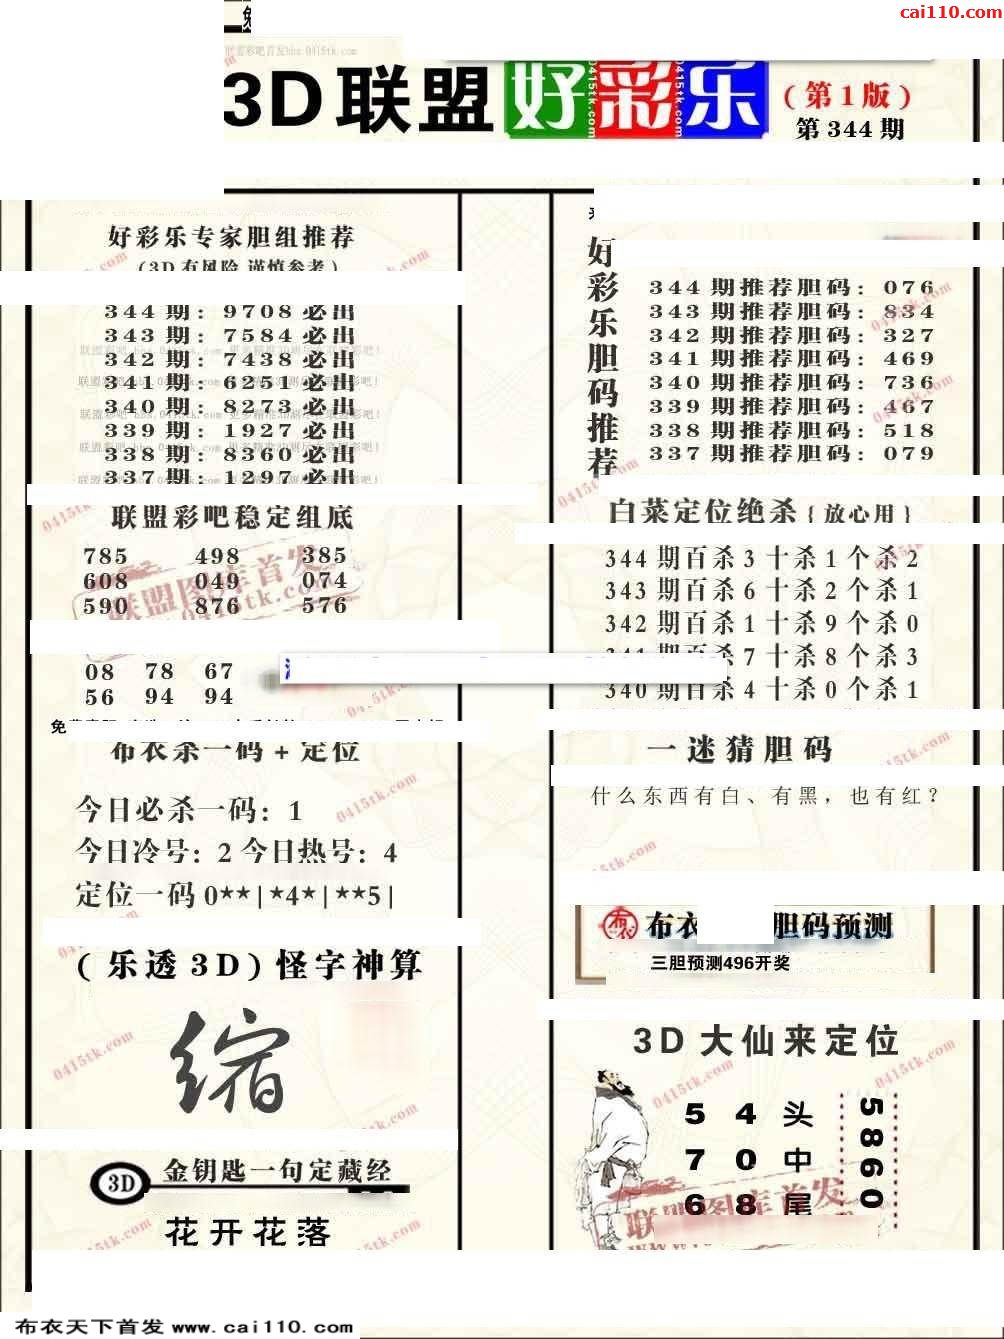 cai110.com
3D联盟 好彩乐 (第1版)
第344期
好彩乐专家胆组推荐
(3D有风险 谨慎参考)
344期: 9708必出
343期: 7584必出
342期: 7438必出
341期: 6251必出
340期: 8273必出
339期: 1927必出
338期: 8360必出
337期: 1297必出
联盟彩吧稳定组底
785 498 385
608 049 074
590 876 576
08 78 67
56 94 94
布衣杀一码+定位
今日必杀一码: 1
今日冷号: 2 今日热号: 4
定位一码 0**|*4*|**5|
(乐透3D)怪字神算
缩
3D 金钥匙一句定藏经
花开花落
好彩乐胆码推荐
344期推荐胆码: 076
343期推荐胆码: 834
342期推荐胆码: 327
341期推荐胆码: 469
340期推荐胆码: 736
339期推荐胆码: 467
338期推荐胆码: 518
337期推荐胆码: 079
白菜定位绝杀{放心用}
344期百杀3十杀1个杀2
343期百杀6十杀2个杀1
342期百杀1十杀9个杀0
341期百杀7十杀8个杀3
340期百杀4十杀0个杀1
一迷猜胆码
什么东西有白、有黑，也有红？
布衣 胆码预测
三胆预测496开奖
3D大仙来定位
5 4 头
7 0 中
6 8 尾
5860
联盟图库首发
布衣天下首发 www.cai110.com